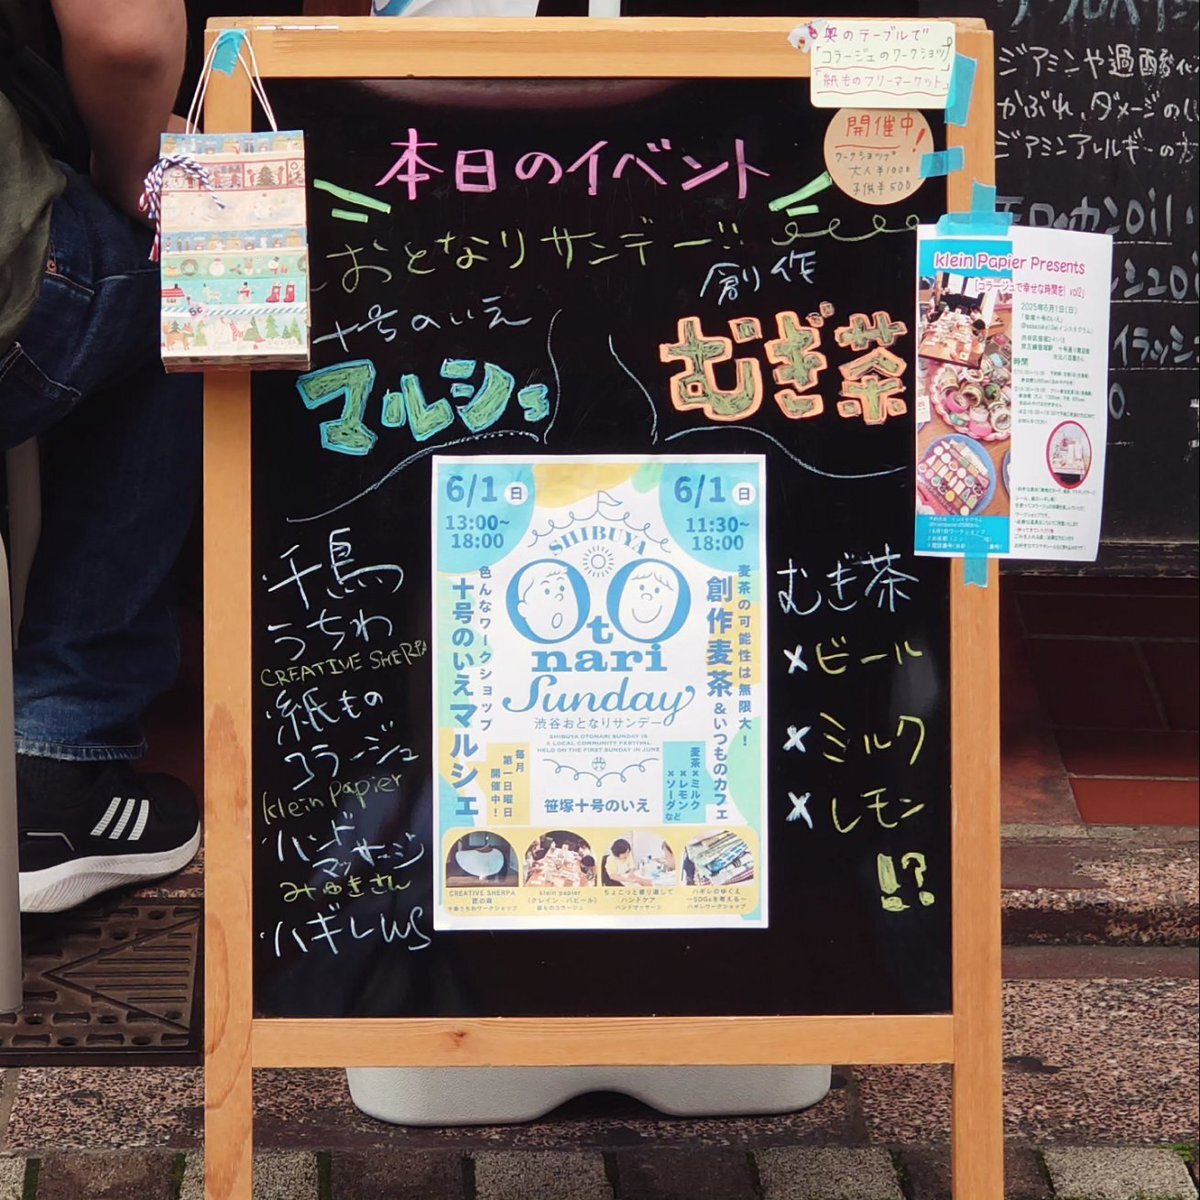 奥のテーブルで
「コラージュのワークショップ」
「紙ものフリーマーケット」
開催中!
ワークショップ
大人¥1000
子供¥500
本日のイベント
おとなりサンデー!!
十号のいえ
マルシェ
創作
むぎ茶
・千鳥
うちわ
CREATIVE SHERPA
・紙もの
コラージュ
klein papier
・ハンド
マッサージ
みゆきさん
・ハギレWS
むぎ茶
×ビール
×ミルク
×レモン
!?
6/1日
13:00~
18:00
6/1日
11:30~
18:00
SHIBUYA
OtO
nari
Sunday
渋谷おとなりサンデー
SHIBUYA OTONARI SUNDAY IS
A LOCAL COMMUNITY FESTIVAL
HELD ON THE FIRST SUNDAY IN JUNE
色んなワークショップ
十号のいえマルシェ
毎月
第一日曜日
開催中!
麦茶の可能性は無限大!
創作麦茶&いつものカフェ
麦茶×ミルク
×レモン
×ソーダなど
笹塚十号のいえ
CREATIVE SHERPA
匠の森
千鳥うちわワークショップ
klein papier
(クレイン・パピール)
紙ものコラージュ
ちょこっと寄り道して
ハンドケア
ハンドマッサージ
ハギレのゆくえ
~SDGsを考える~
ハギレワークショップ
klein Papier Presents
「コラージュで幸せな時間を! vol2」
2025年6月1日(日)
「笹塚十号のいえ」
時間
ジアミンや過酸化
かぶれ、ダメージの
ジアミンアレルギーの方